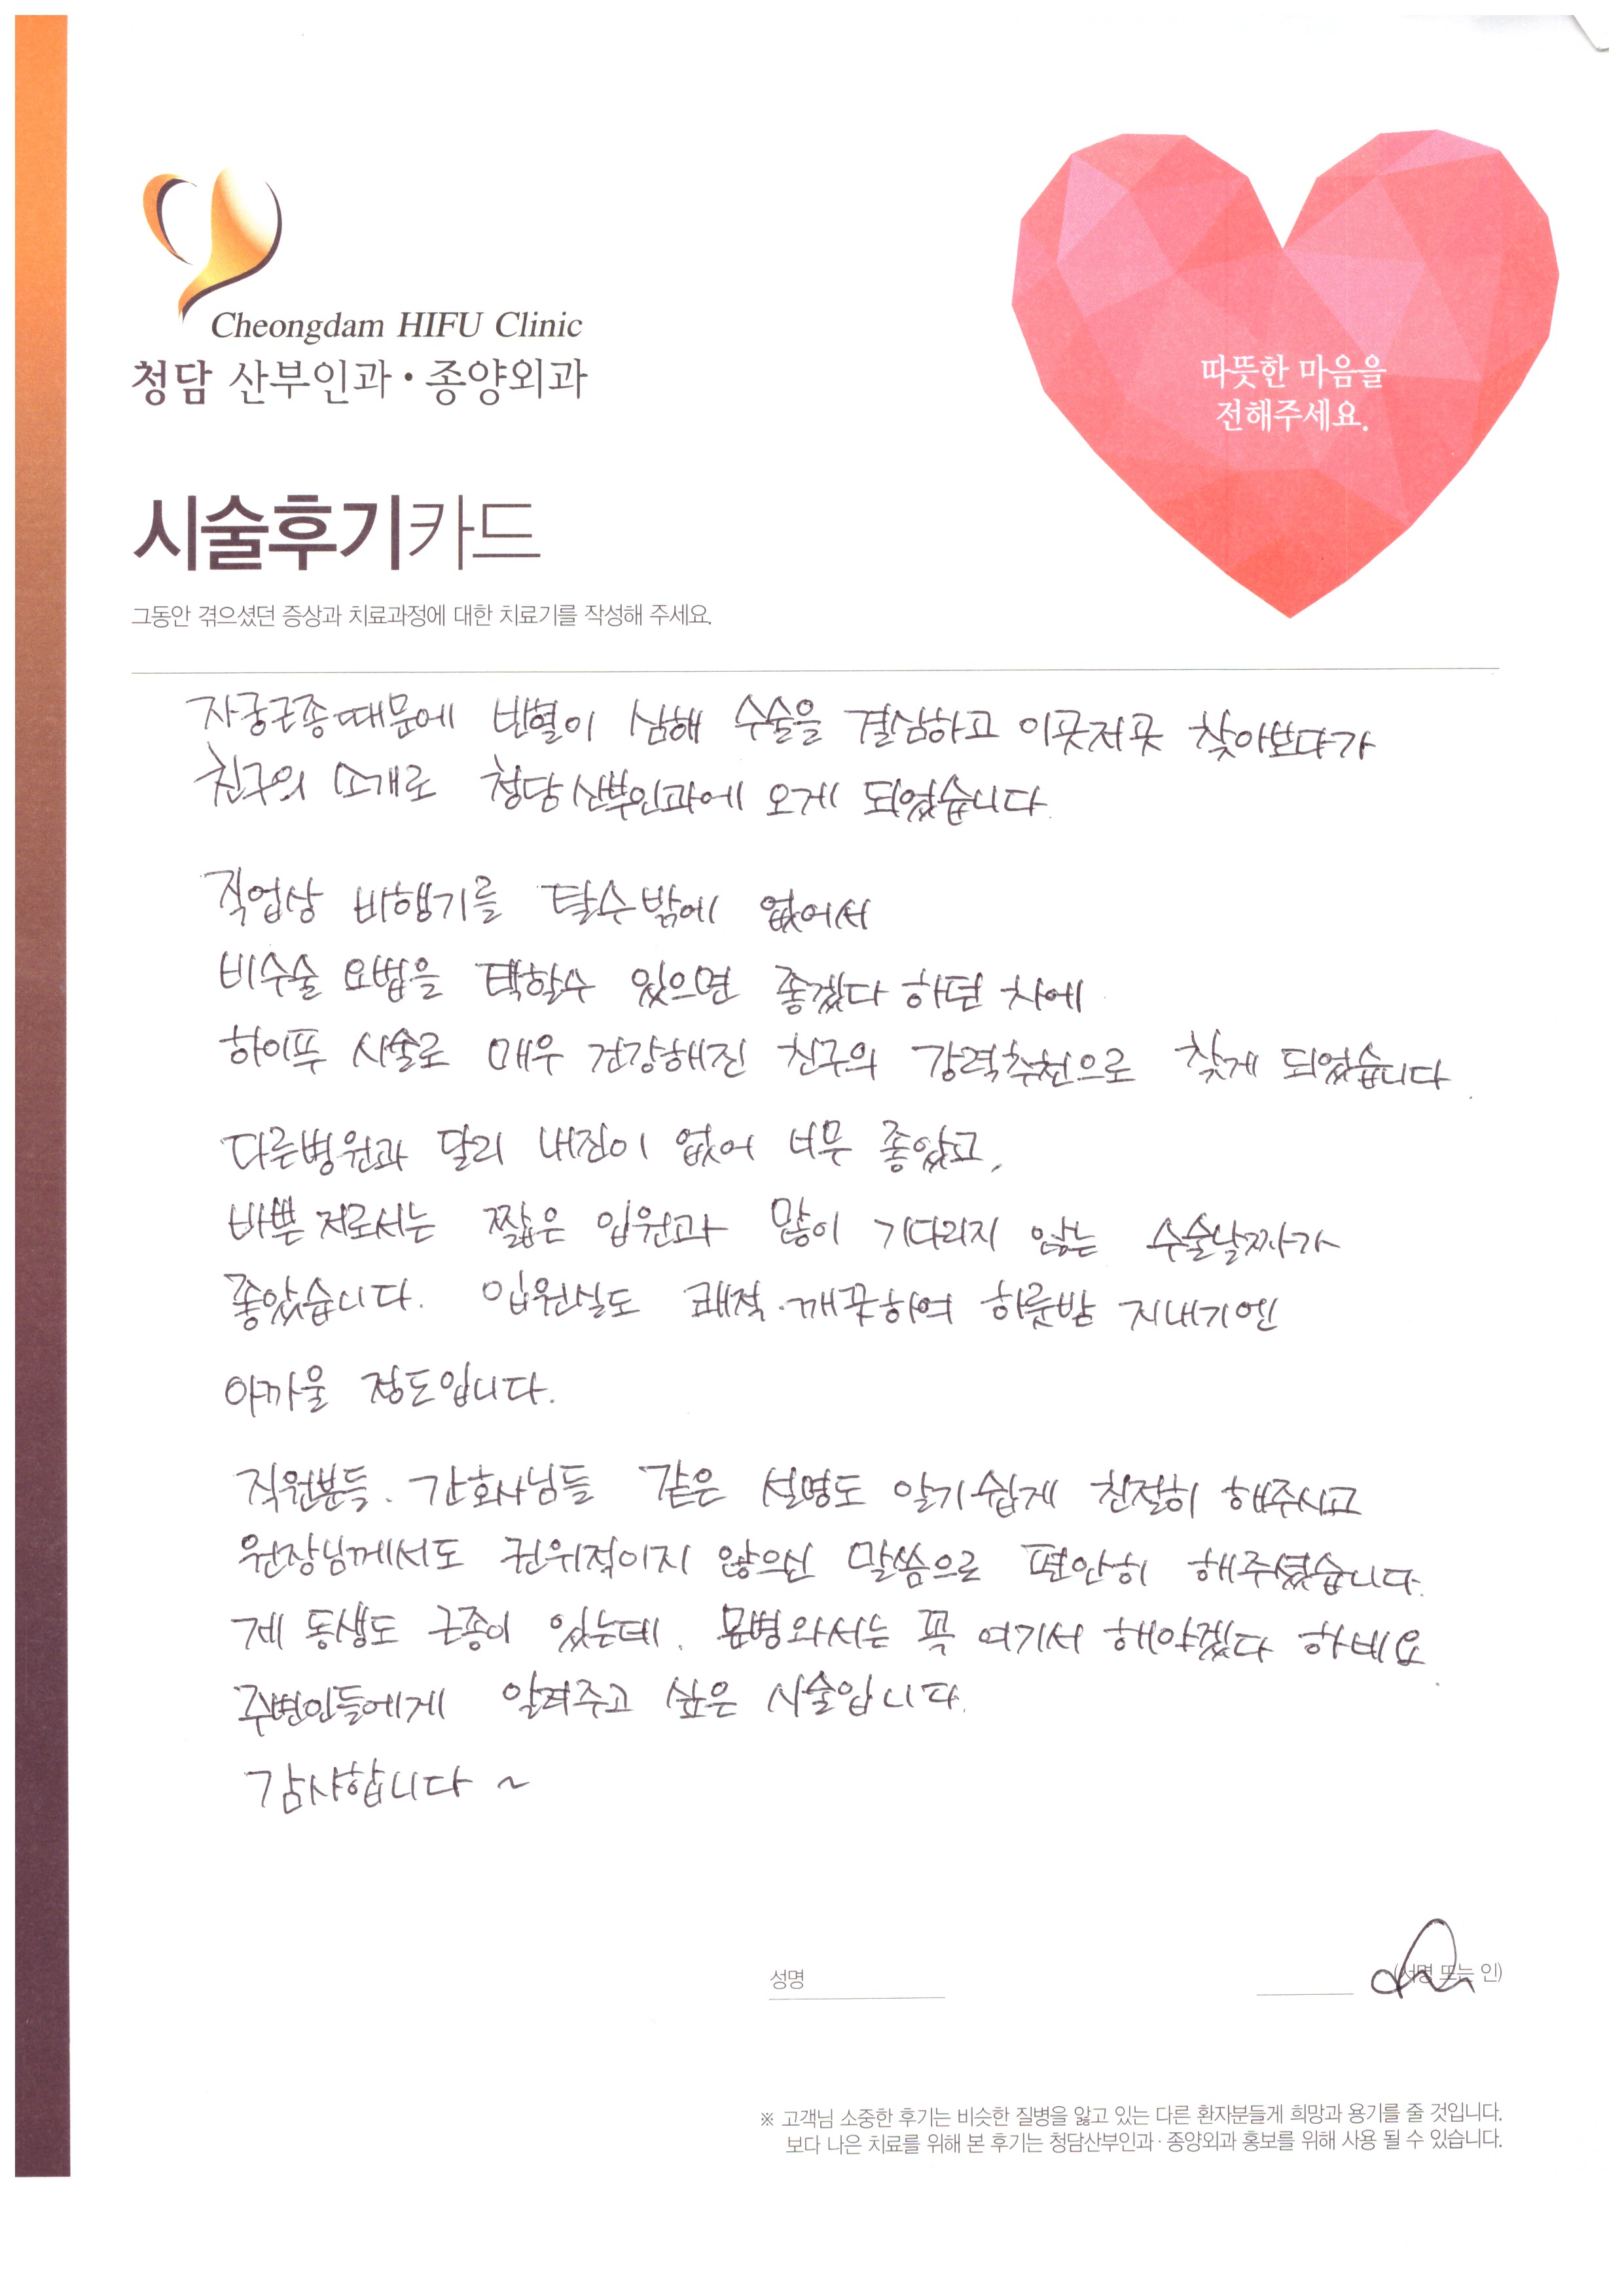 Cheongdam HIFU Clinic
청담 산부인과·종양외과
따뜻한 마음을
전해주세요.
시술후기카드
그동안 겪으셨던 증상과 치료과정에 대한 치료기를 작성해 주세요.
자궁근종때문에 빈혈이 심해 수술을 결심하고 이곳저곳 찾아보다가
친구의 소개로 청담산부인과에 오게 되었습니다.
직업상 비행기를 탈수밖에 없어서
비수술 요법을 택할수 있으면 좋겠다 하던 차에
하이푸 시술로 매우 건강해진 친구의 강력추천으로 찾게 되었습니다.
다른병원과 달리 내진이 없어 너무 좋았고,
바쁜 저로서는 짧은 입원과 많이 기다리지 않는 수술날짜가
좋았습니다. 입원실도 쾌적·깨끗하여 하룻밤 지내기엔
아까울 정도입니다.
직원분들. 간호사님들 같은 설명도 알기쉽게 친절히 해주시고
원장님께서도 권위적이지 않으신 말씀으로 편안히 해주셨습니다.
제 동생도 근종이 있는데. 문병와서는 꼭 여기서 해야겠다 하네요.
주변인들에게 알려주고 싶은 시술입니다.
감사합니다 ~
성명 (서명 또는 인)
※ 고객님 소중한 후기는 비슷한 질병을 앓고 있는 다른 환자분들게 희망과 용기를 줄 것입니다.
보다 나은 치료를 위해 본 후기는 청담산부인과·종양외과 홍보를 위해 사용 될 수 있습니다.